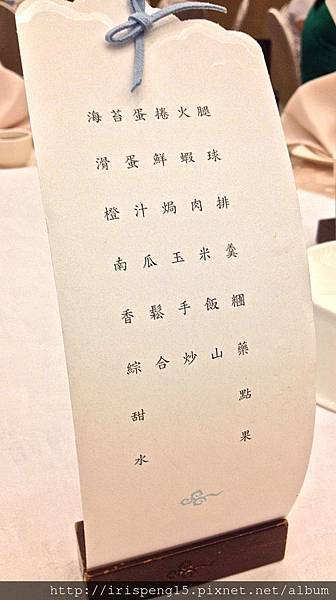 海苔蛋捲火腿
滑蛋鮮蝦球
橙汁焗肉排
南瓜玉米羹
香鬆手飯糰
綜合炒山藥
甜點
水果
http://irispeng15.pixnet.net/album